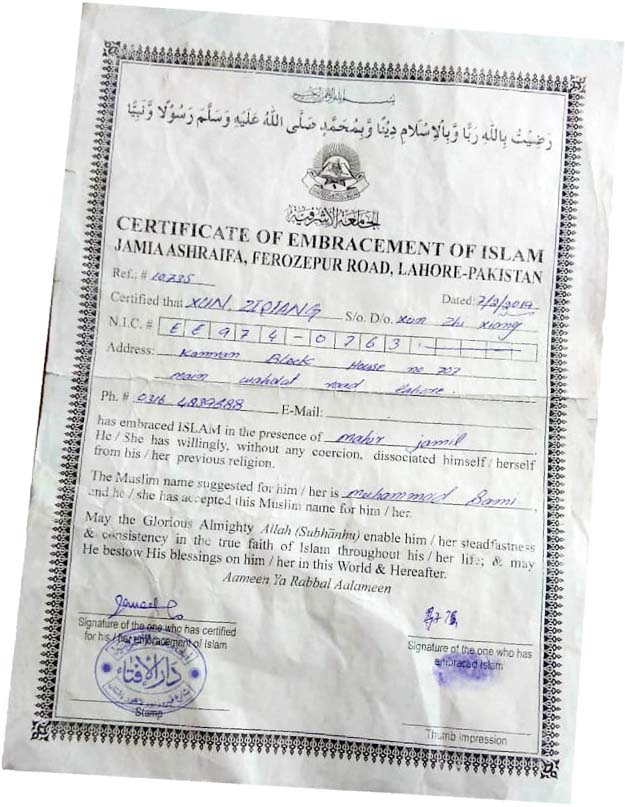 رَضِيْتُ بِاللهِ رَبًّا وَّبِالْاِسْلَامِ دِيْنًا وَّبِمُحَمَّدٍ صَلَّى اللهُ عَلَيْهِ وَسَلَّمَ رَسُوْلًا وَّنَبِيًّا
الجامعة الاشرفية
CERTIFICATE OF EMBRACEMENT OF ISLAM
JAMIA ASHRAIFA, FEROZEPUR ROAD, LAHORE-PAKISTAN
Ref.: # 10735 Dated: 7/2/2019
Certified that XUN, ZIQIANG S/o. D/o. Xun Zhi Xiang
N.I.C. # EE974-0763
Address: Kamran Block House no 707
main wahdat road lahore.
Ph. # 0316 4839888 E-Mail:
has embraced ISLAM in the presence of mahir jamil
He / She has willingly, without any coercion, dissociated himself / herself
from his / her previous religion.
The Muslim name suggested for him / her is muhammad Sami,
and he / she has accepted this Muslim name for him / her.
May the Glorious Almighty Allah (Subhānhu) enable him / her steadfastness
& consistency in the true faith of Islam throughout his / her life; & may
He bestow His blessings on him / her in this World & Hereafter.
Aameen Ya Rabbal Aalameen
Signature of the one who has certified
for his / her embracement of Islam
Signature of the one who has
embraced Islam
دار الافتاء
Stamp
Thumb impression